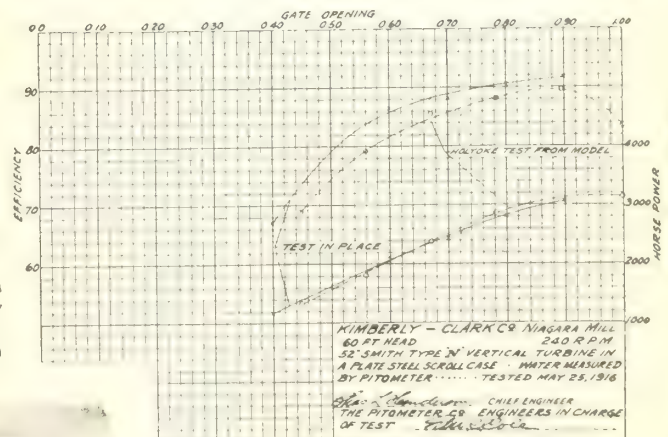 GATE OPENING
0.0 0.10 0.20 0.30 0.40 0.50 0.60 0.70 0.80 0.90 1.00
90
80
70
60
EFFICIENCY
4000
3000
2000
1000
HORSE POWER
HOLYOKE TEST FROM MODEL
TEST IN PLACE
KIMBERLY - CLARK CO NIAGARA MILL
60 FT HEAD 240 R P M
52" SMITH TYPE "N" VERTICAL TURBINE IN
A PLATE STEEL SCROLL CASE - WATER MEASURED
BY PITOMETER ...... TESTED MAY 25, 1916
CHIEF ENGINEER
THE PITOMETER CO ENGINEERS IN CHARGE
OF TEST